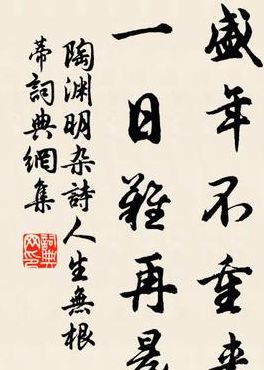 盛年不重来
一日難再晨
陶渊明杂詩人生無根
蒂詞典網集